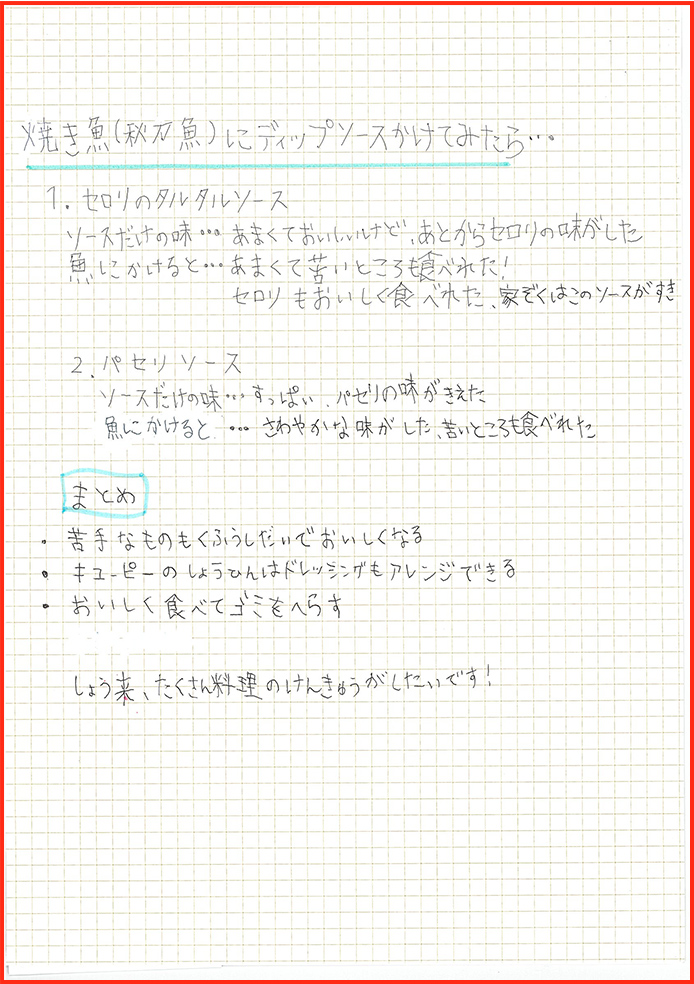 焼き魚(秋刀魚)にディップソースかけてみたら…
1. セロリのタルタルソース
ソースだけの味…あまくておいしいけど、あとからセロリの味がした
魚にかけると…あまくて苦いところも食べれた!
セロリもおいしく食べれた、家ぞくはこのソースがすき
2. パセリソース
ソースだけの味…すっぱい、パセリの味がきえた
魚にかけると…さわやかな味がした、苦いところも食べれた
まとめ
・苦手なものもくふうしだいでおいしくなる
・キューピーのしょうひんはドレッシングもアレンジできる
・おいしく食べてゴミをへらす
しょう来、たくさん料理のけんきゅうがしたいです!